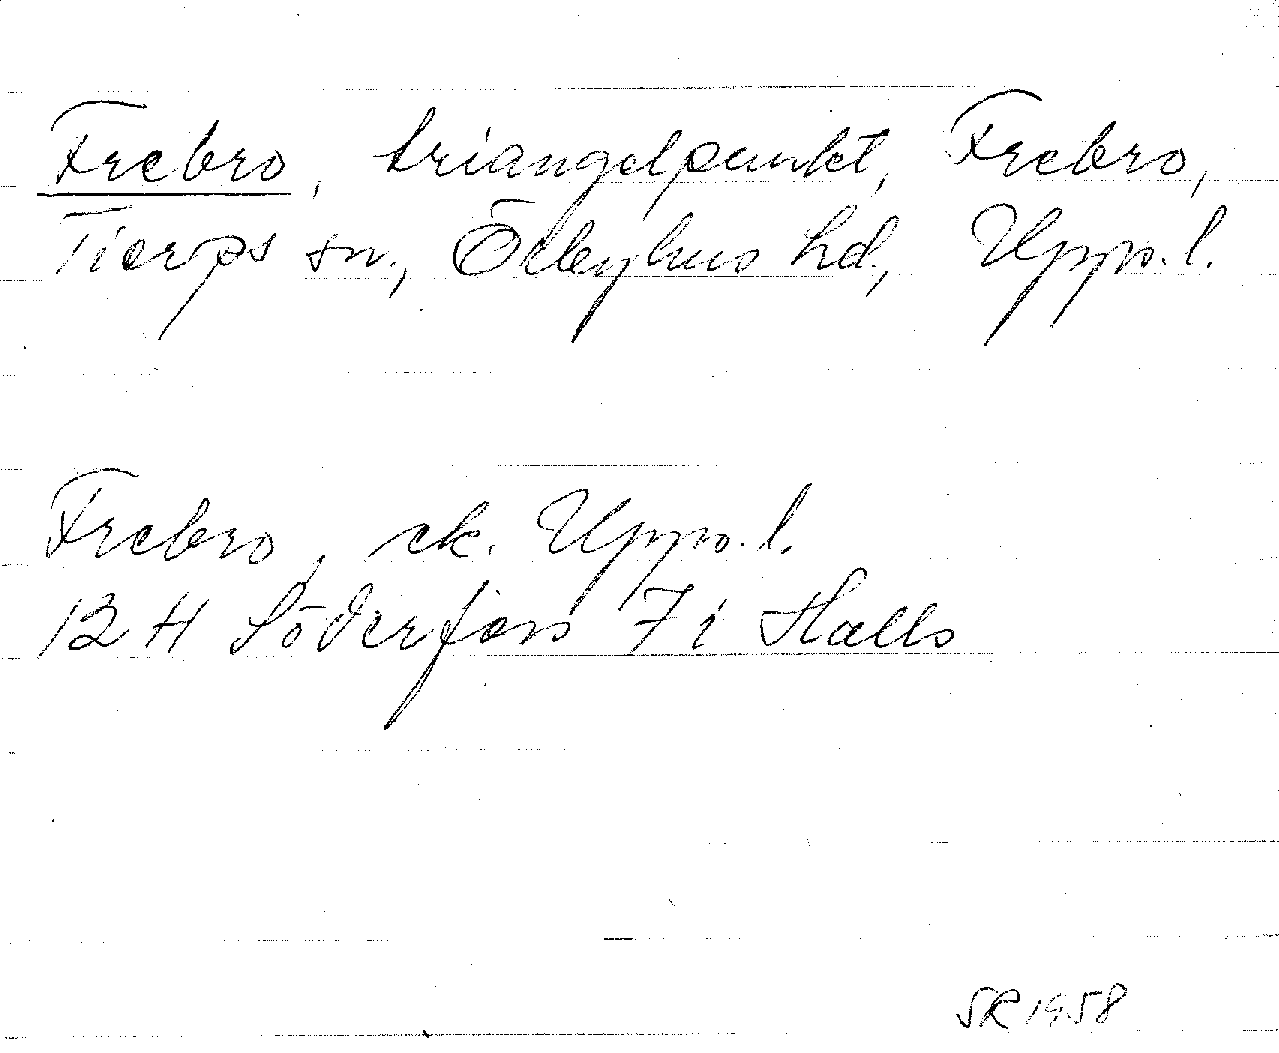 Frebro, triangelpunkt, Frebro,
Tierps sn., Örbyhus hd, Upps. l.
Frebro, ek. Upps. l.
12 H Söderfors 7 i Halls
SR 1958